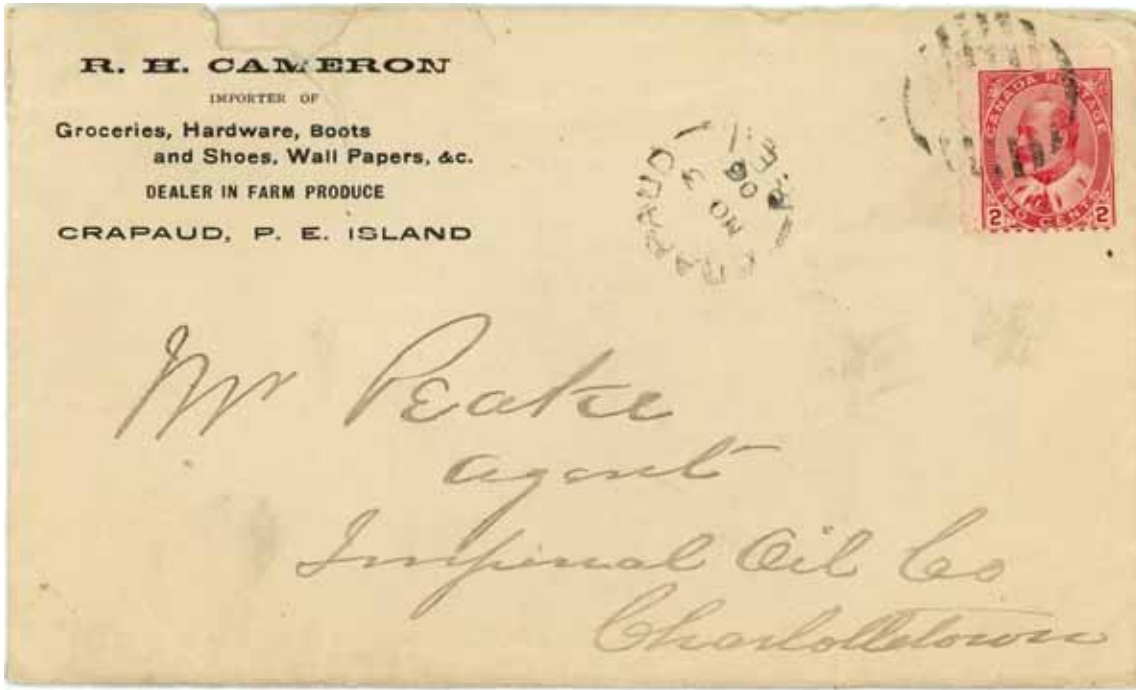 R. H. CAMERON
IMPORTER OF
Groceries, Hardware, Boots
and Shoes, Wall Papers, &c.
DEALER IN FARM PRODUCE
CRAPAUD, P. E. ISLAND
CRAPAUD
NO 3
06
P.E.I
CANADA POSTAGE
2 TWO CENTS 2
Mr Peake
agent
Imperial Oil Co
Charlottetown